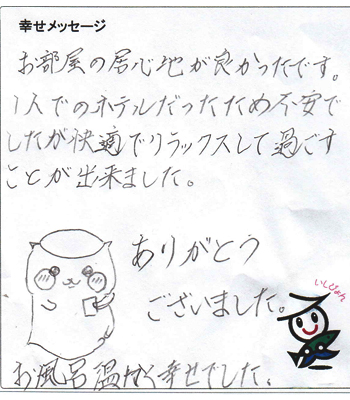 幸せメッセージ
お部屋の居心地が良かったです。
1人でのホテルだったため不安で
したが快適でリラックスして過ごす
ことが出来ました。
ありがとう
ございました。
いしぴょん
お風呂温かく幸せでした。